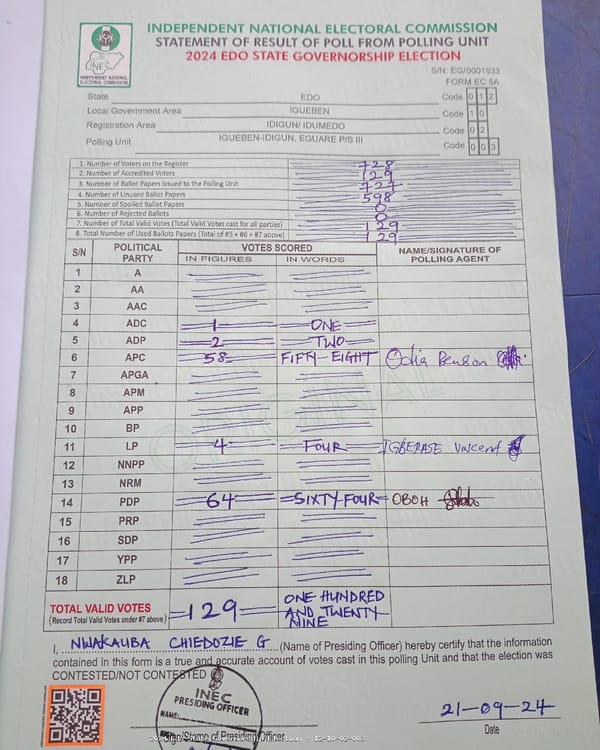 INDEPENDENT NATIONAL ELECTORAL COMMISSION
STATEMENT OF RESULT OF POLL FROM POLLING UNIT
2024 EDO STATE GOVERNORSHIP ELECTION
INEC
INDEPENDENT NATIONAL
ELECTORAL COMMISSION
S/N: EG/0001933
FORM EC 8A
State EDO Code 0 1 2
Local Government Area IGUEBEN Code 1 0
Registration Area IDIGUN/ IDUMEDO Code 0 2
Polling Unit IGUEBEN-IDIGUN, EGUARE P/S III Code 0 0 3
1. Number of Voters on the Register 728
2. Number of Accredited Voters 129
3. Number of Ballot Papers Issued to the Polling Unit 727
4. Number of Unused Ballot Papers 598
5. Number of Spoiled Ballot Papers 0
6. Number of Rejected Ballots 0
7. Number of Total Valid Votes (Total Valid Votes cast for all parties) 129
8. Total Number of Used Ballots Papers (Total of #5 + #6 + #7 above) 129
S/N POLITICAL PARTY VOTES SCORED NAME/SIGNATURE OF POLLING AGENT
IN FIGURES IN WORDS
1 A
2 AA
3 AAC
4 ADC 1 ONE
5 ADP 2 TWO
6 APC 58 FIFTY-EIGHT Odia Benson
7 APGA
8 APM
9 APP
10 BP
11 LP 4 FOUR IGBERASE Vincent
12 NNPP
13 NRM
14 PDP 64 SIXTY-FOUR OBOH
15 PRP
16 SDP
17 YPP
18 ZLP
TOTAL VALID VOTES 129 ONE HUNDRED
(Record Total Valid Votes under #7 above) AND TWENTY
NINE
I, NWAKAUBA CHIEDOZIE G (Name of Presiding Officer) hereby certify that the information
contained in this form is a true and accurate account of votes cast in this polling Unit and that the election was
CONTESTED/NOT CONTESTED
INEC
PRESIDING OFFICER
NAME:
21-09-24
Date
Sign/Stamp of Presiding Officer